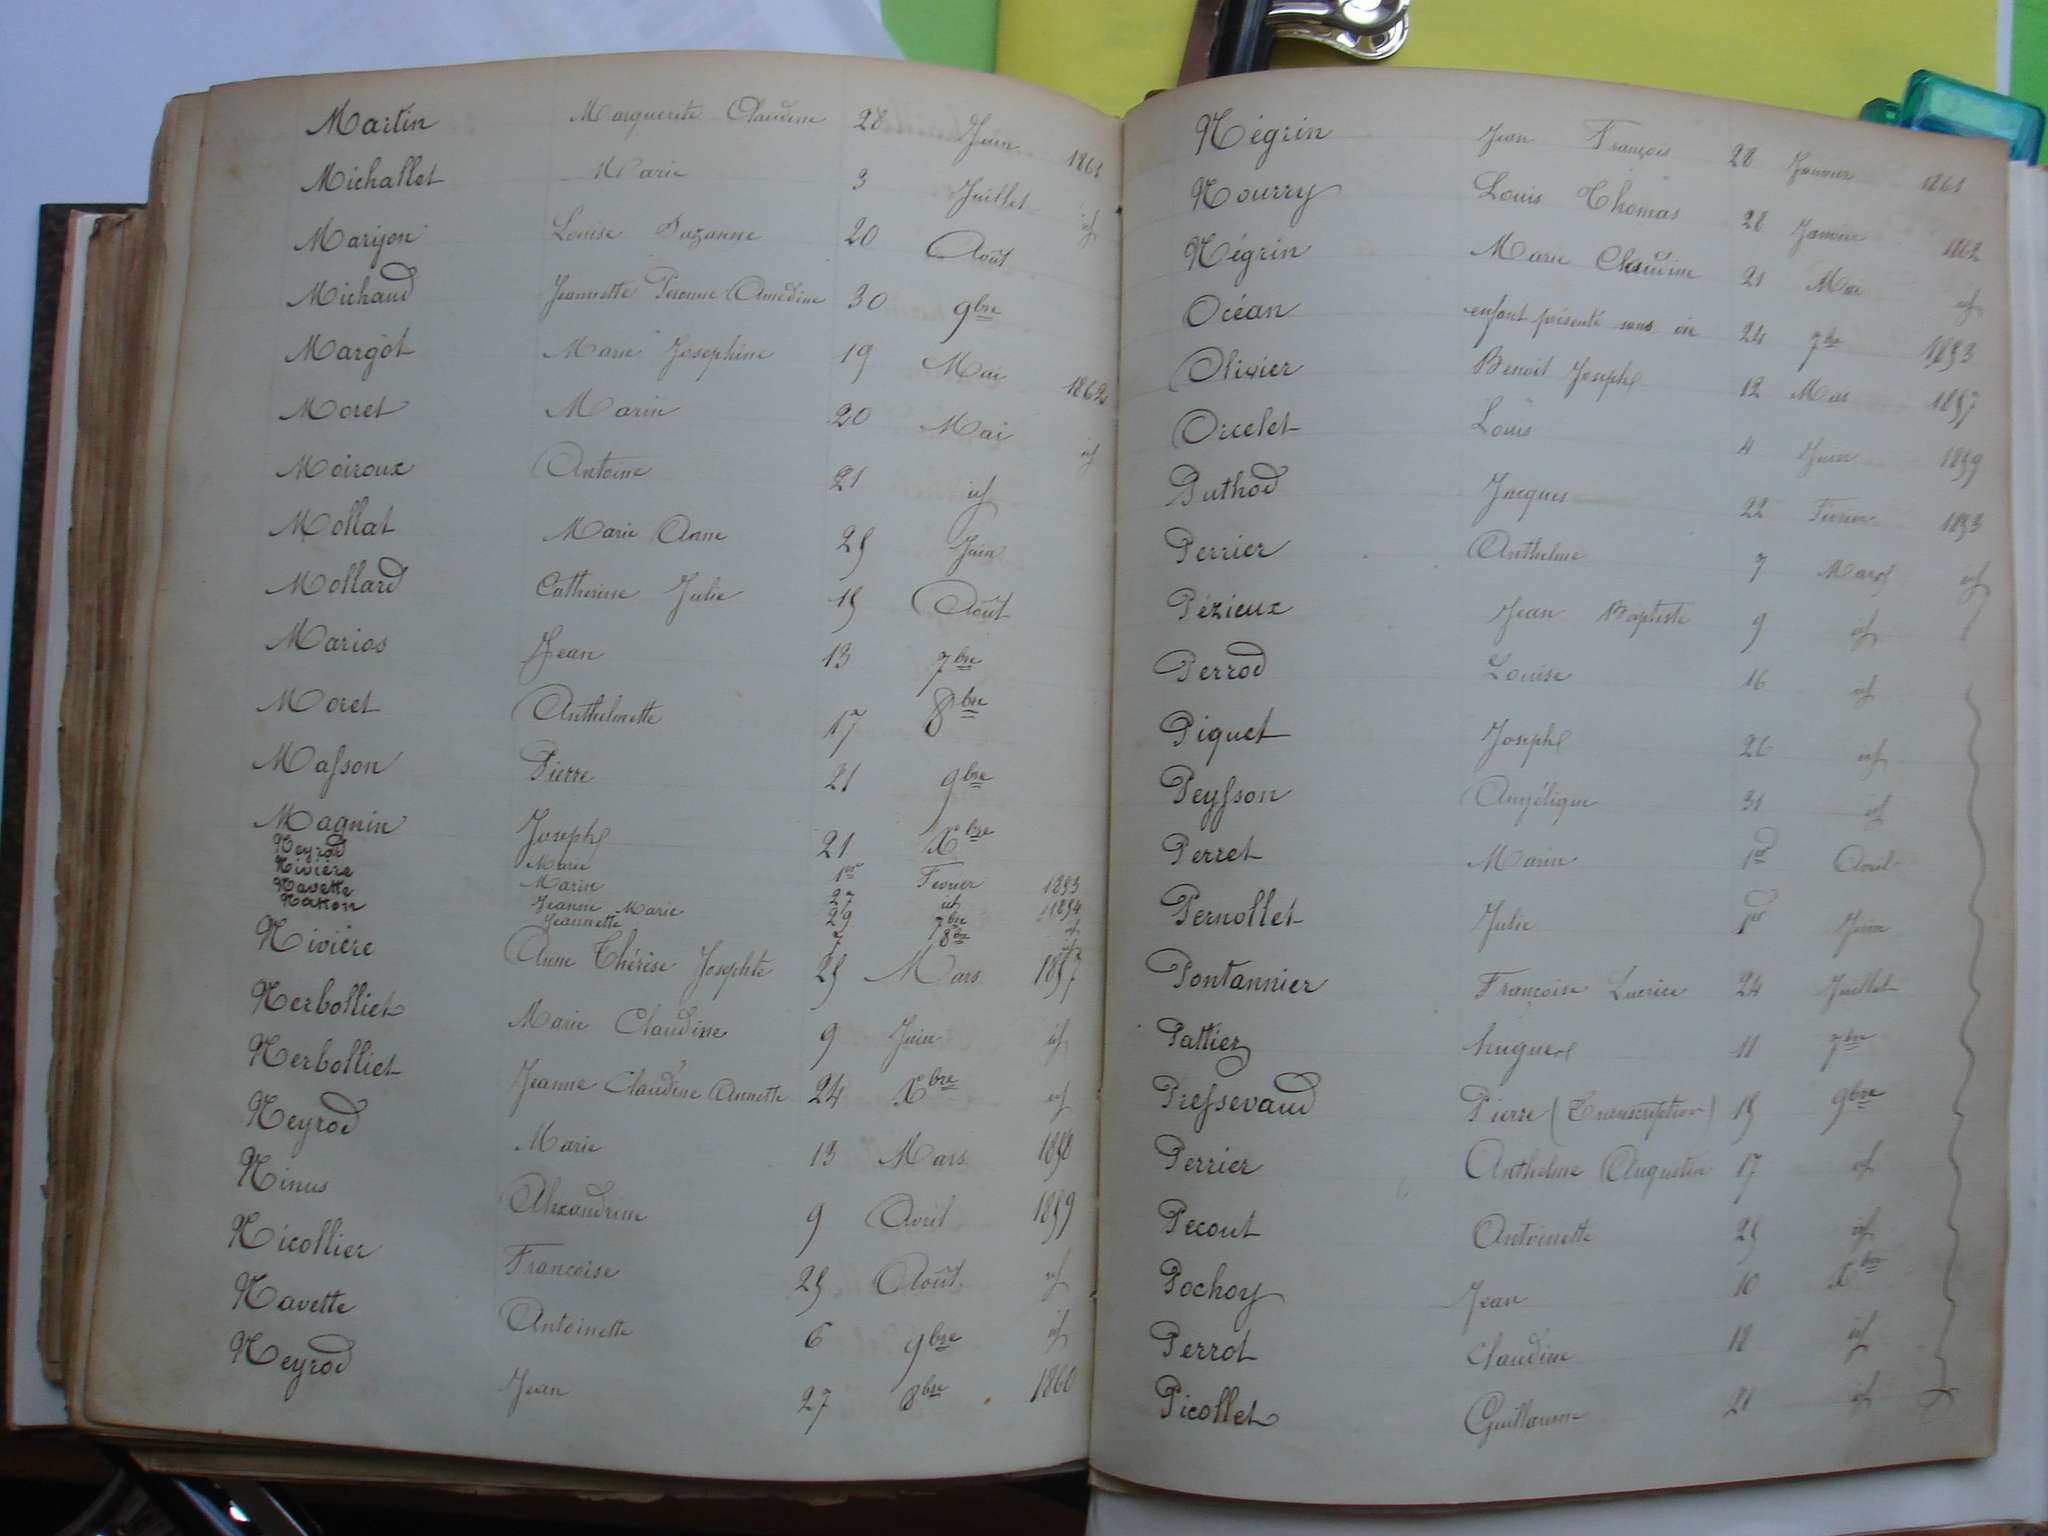 Martin Marguerite Claudine 28 Juin 1861
Michallet Marie 3 Juillet id
Marijon Louise Suzanne 20 Août
Michaud Jeannette Péronne Amédine 30 9bre
Margot Marie Josephine 19 Mai 1862
Moret Marin 20 Mai id
Moiroux Antoine 21 id
Mollat Marie Anne 25 Juin
Mollard Catherine Julie 15 Août
Marios Jean 13 7bre
Moret Anthelmette 17 8bre
Masson Pierre 21 9bre
Magnin Joseph 21 Xbre
Neyrod Marie 1er Février 1853
Nivière Marin 27 id 1854
Navette Jeanne Marie 29 7bre id
Natton Jeannette 7 8bre id
Nivière Anne Thérèse Josephte 25 Mars 1857
Nerbolliet Marie Claudine 9 Juin id
Nerbolliet Jeanne Claudine Annette 24 Xbre id
Neyrod Marie 13 Mars 1858
Ninus Alexandrine 9 Avril 1859
Nicollier Francoise 25 Août id
Navette Antoinette 6 9bre id
Neyrod Jean 27 8bre 1860
Négrin Jean François 28 Janvier 1861
Nourry Louis Thomas 28 Janvier 1862
Négrin Marie Claudine 21 Mai id
Océan enfant présenté sans vie 24 7bre 1853
Olivier Benoit Joseph 12 Mai 1857
Orcelet Louis 4 Juin 1859
Puthod Jacques 22 Février 1853
Perrier Anthelme 7 Mars id
Pézieux Jean Baptiste 9 id
Perrod Louise 16 id
Piquet Joseph 26 id
Peysson Angélique 31 id
Perret Marin 1er Avril
Pernollet Julie 1er Juin
Pontannier Françoise Lucrice 24 Juillet
Pattier hugues 11 7bre
Pressevaud Pierre (Transcription) 15 9bre
Perrier Anthelme Augustin 17 id
Pecout Antoinette 25 id
Pochoy Jean 10 Xbre
Perrot Claudine 18 id
Picollet Guillaume 21 id